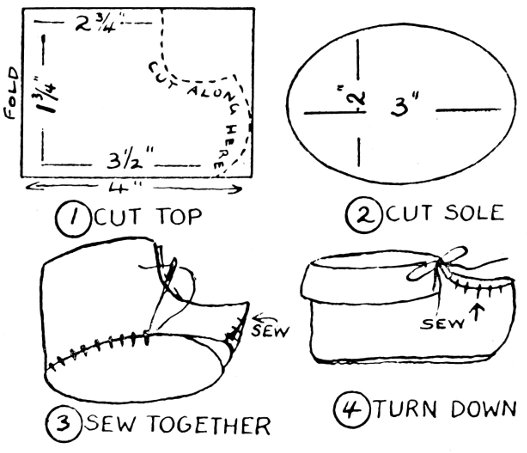 2 3/4"
FOLD
1 3/4"
CUT ALONG HERE
3 1/2"
4"
1 CUT TOP
2"
3"
2 CUT SOLE
SEW
3 SEW TOGETHER
SEW
4 TURN DOWN